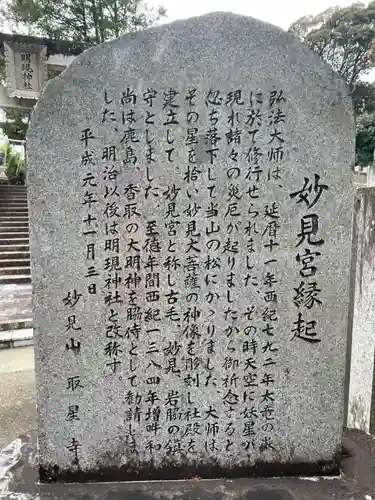 明現神社
妙見宮縁起
弘法大師は、延暦十一年西紀七九二年太竜の嶽
に於て修行せられました。その時天空に妖星が
現れ諸々の災厄が起りましたから御祈念すると
忽ち落下して当山の松にかゝりました。大師は
その星を拾い妙見大菩薩の神像を彫刻し社殿を
建立して、妙見宮と称し古毛、妙見、岩脇の鎮
守としました。至徳年間西紀一三八四年増吽和
尚は鹿島、香取の大明神を脇侍として勧請しま
した。明治以後は明現神社と改称す。
平成元年十一月三日
妙見山 取星寺